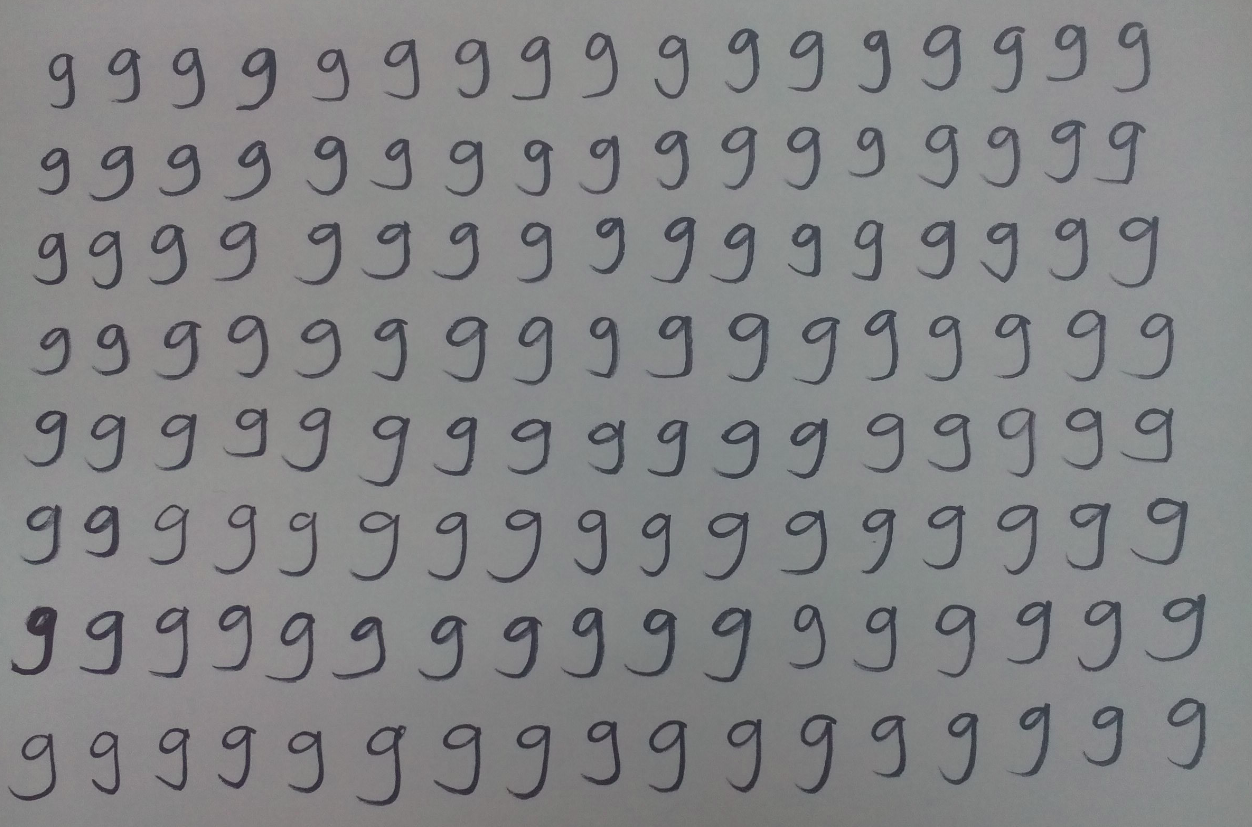 9 9 9 9 9 9 9 9 9 9 9 9 9 9 9 9 9
9 9 9 9 9 9 9 9 9 9 9 9 9 9 9 9 9
9 9 9 9 9 9 9 9 9 9 9 9 9 9 9 9 9
9 9 9 9 9 9 9 9 9 9 9 9 9 9 9 9 9
9 9 9 9 9 9 9 9 9 9 9 9 9 9 9 9 9
9 9 9 9 9 9 9 9 9 9 9 9 9 9 9 9 9
9 9 9 9 9 9 9 9 9 9 9 9 9 9 9 9 9
9 9 9 9 9 9 9 9 9 9 9 9 9 9 9 9 9